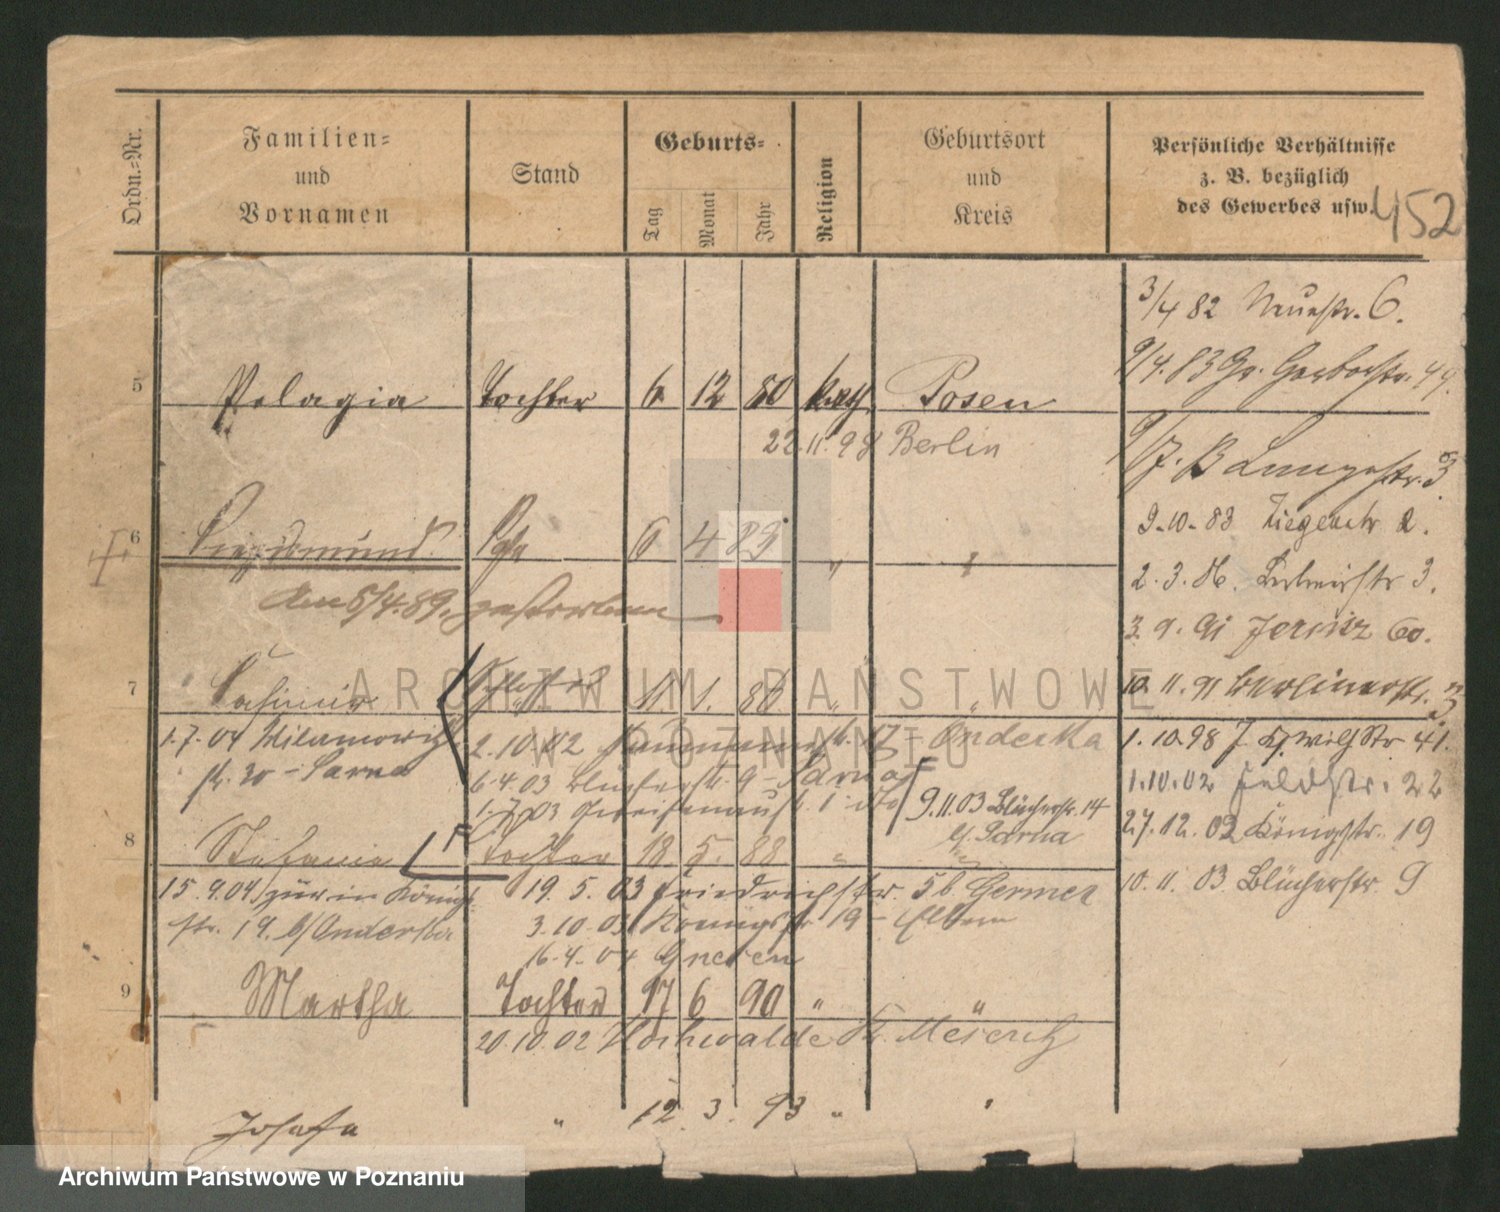 Ordn.-Nr.
Familien-
und
Vornamen
Stand
Geburts-
Tag
Monat
Jahr
Religion
Geburtsort
und
Kreis
Persönliche Verhältnisse
z. B. bezüglich
des Gewerbes usw.
452
3/4 82 Neuestr. 6.
9/4. 83 Gr. Gerberstr. 49.
5 Pelagia Tochter 6 12 80 Kath Posen
22.11.98 Berlin
3.
9.10.83 Ziegenstr 2.
6 Siegismund Sohn 6 4 83 "
2.3.86. 3.
Am 5/4.89. gestorben
3.9.91 Jersitz 60.
7 Casimir 1. 86 "
10.11.91 Berlinerstr.
1.7.04
str. 20 - Sarna
2.10.02 17 - Onderka
6.4.03 Blücherstr. 9 - Sarna
1.7.03 Gneisenaustr. 1 dto
9.11.03 Blücherstr. 14
b/ Sarna
1.10.98 41.
1.10.02 Feldstr. 22
27.12.02 Königstr. 19
10.11.03 Blücherstr. 9
8 Stefanie Tochter 18. 5. 88 "
15.9.04 zur in König
str. 19. b/ Onderka
19.5.03 Friedrichstr. 5b Germer
3.10.03 Königstr 19 - Eltern
16.4.04 Gnesen
9 Martha Tochter 17 6 90 " "
20.10.02 Hochwalde Kr. Meseritz
Josefa " 12. 3. 93 " "
ARCHIWUM PAŃSTWOWE
W POZNANIU
Archiwum Państwowe w Poznaniu